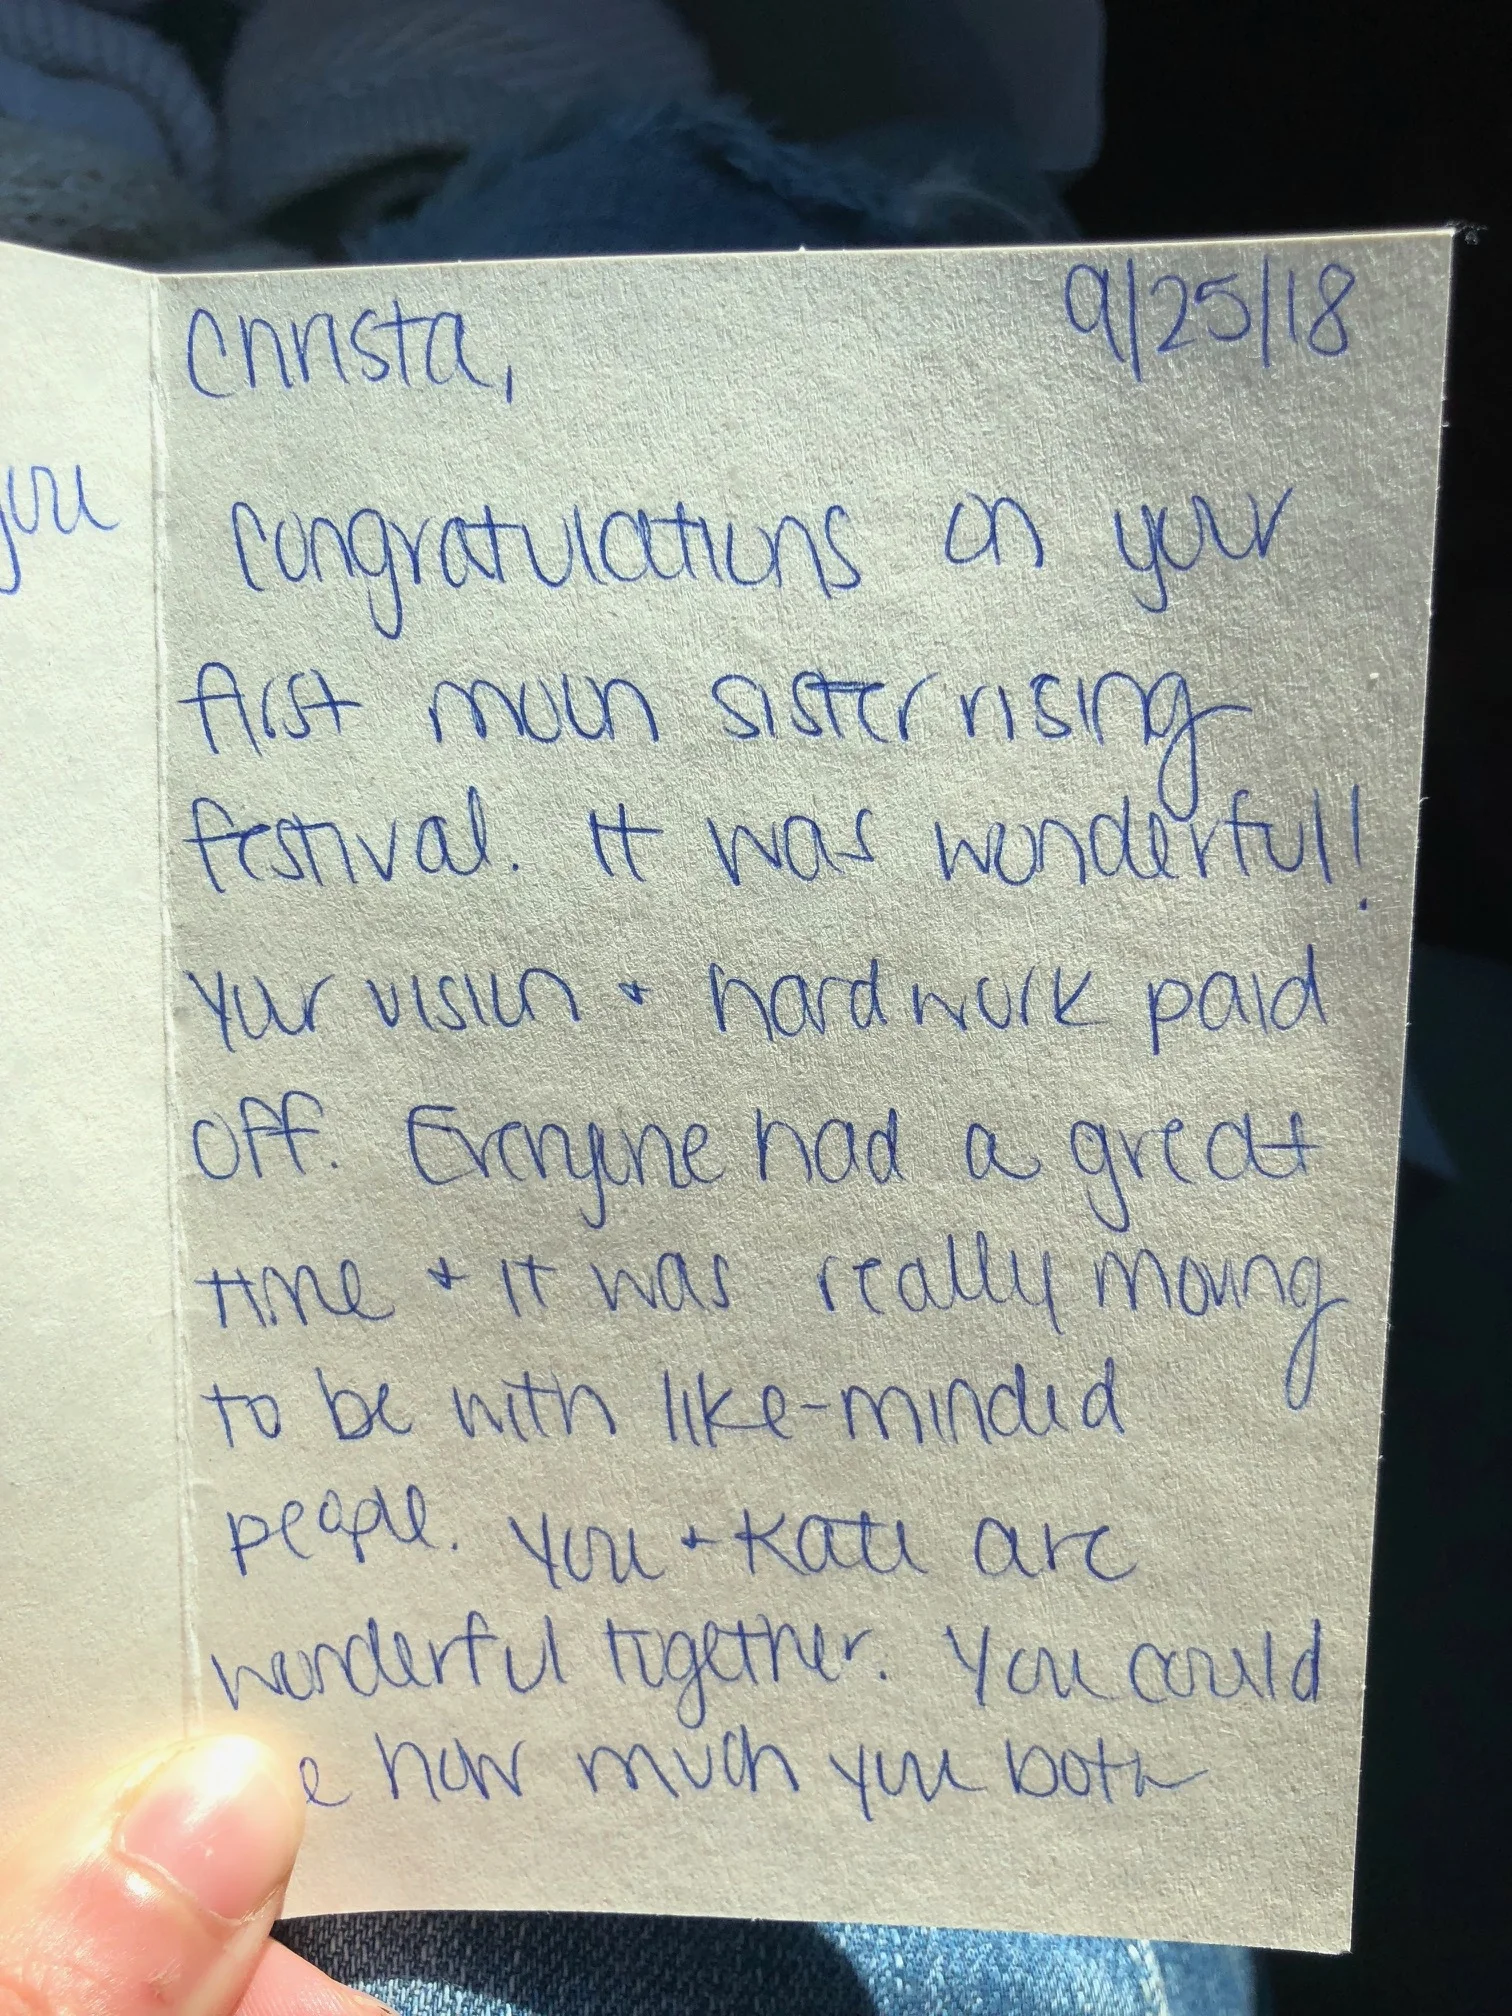 you
Christa,
9/25/18
Congratulations on your
first moon sister rising
festival. It was wonderful!
Your vision + hard work paid
off. Everyone had a great
time + it was really moving
to be with like-minded
people. You + Katie are
wonderful together. You could
e how much you both